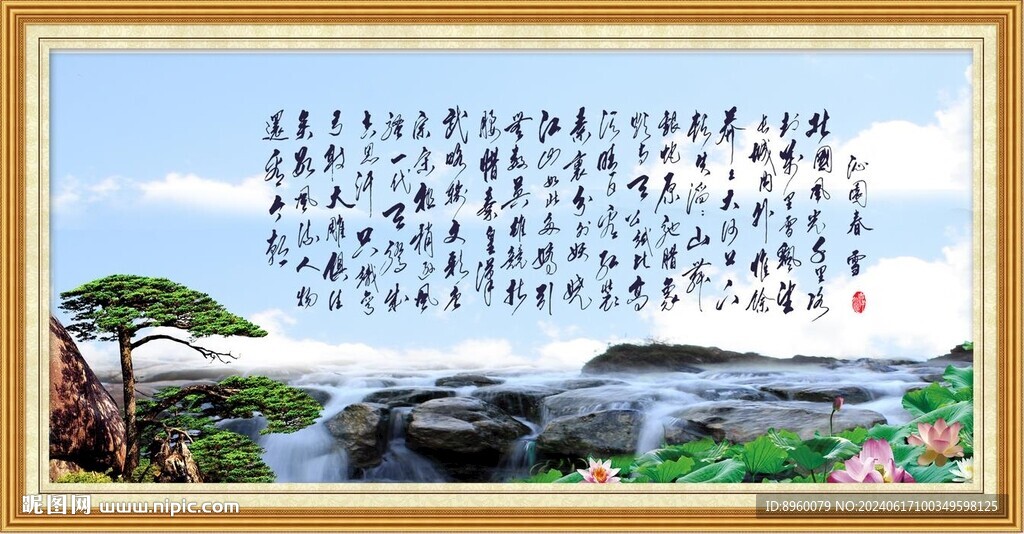 沁园春 雪
北國風光千里冰
封萬里雪飄望
长城内外惟餘
莽莽大河上下
頓失滔滔山舞
銀蛇原馳腊象
欲与天公試比高
須晴日看红装
素裹分外妖娆
江山如此多嬌引
無數英雄競折
腰惜秦皇漢
武略輸文彩唐
宗宋祖稍遜風
騷一代天驕成
吉思汗只識弯
弓射大雕俱往
矣數風流人物
還看今朝
昵图网 www.nipic.com
ID:8960079 NO:20240617100349598125